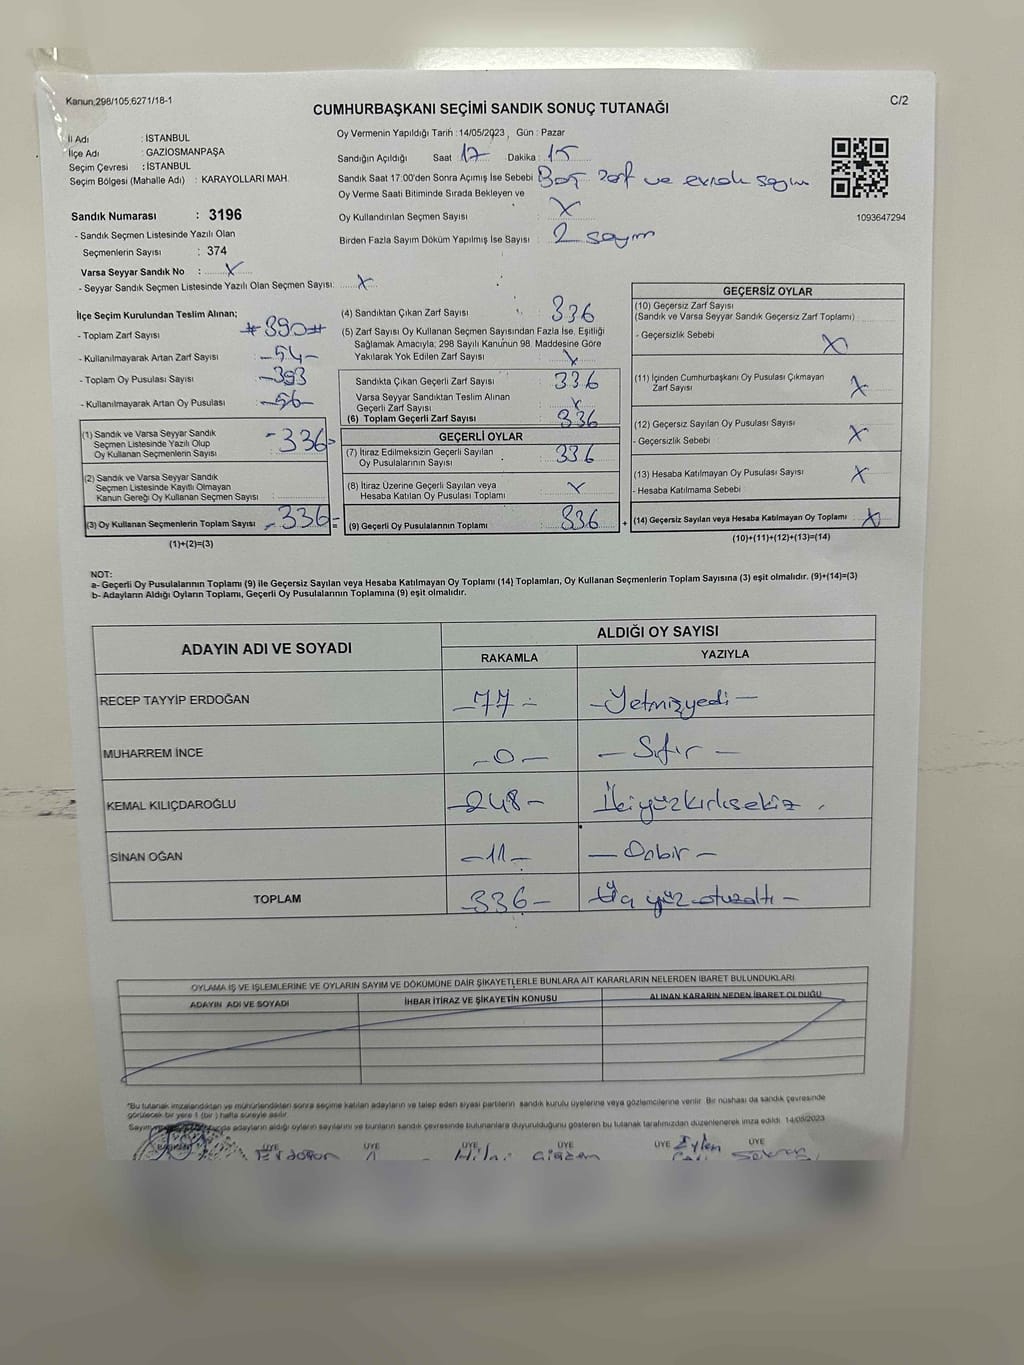 Kanun;298/105,6271/18-1
C/2
CUMHURBAŞKANI SEÇİMİ SANDIK SONUÇ TUTANAĞI
İl Adı : İSTANBUL
İlçe Adı : GAZİOSMANPAŞA
Seçim Çevresi : İSTANBUL
Seçim Bölgesi (Mahalle Adı) : KARAYOLLARI MAH.
Sandık Numarası : 3196
- Sandık Seçmen Listesinde Yazılı Olan
Seçmenlerin Sayısı : 374
Varsa Seyyar Sandık No : X
- Seyyar Sandık Seçmen Listesinde Yazılı Olan Seçmen Sayısı: X
Oy Vermenin Yapıldığı Tarih :14/05/2023 , Gün : Pazar
Sandığın Açıldığı Saat 17 Dakika : 15
Sandık Saat 17:00'den Sonra Açımış İse Sebebi Boş zarf ve evrak sayım
Oy Verme Saati Bitiminde Sırada Bekleyen ve
Oy Kullandırılan Seçmen Sayısı : X
Birden Fazla Sayım Döküm Yapılmış İse Sayısı : 2 sayım
1093647294
İlçe Seçim Kurulundan Teslim Alınan;
- Toplam Zarf Sayısı #390#
- Kullanılmayarak Artan Zarf Sayısı -54-
- Toplam Oy Pusulası Sayısı -393
- Kullanılmayarak Artan Oy Pusulası -56-
(1) Sandık ve Varsa Seyyar Sandık
Seçmen Listesinde Yazılı Olup
Oy Kullanan Seçmenlerin Sayısı -336-
(2) Sandık ve Varsa Seyyar Sandık
Seçmen Listesinde Kayıtlı Olmayan
Kanun Gereği Oy Kullanan Seçmen Sayısı
(3) Oy Kullanan Seçmenlerin Toplam Sayısı -336-
(1)+(2)=(3)
(4) Sandıktan Çıkan Zarf Sayısı 336
(5) Zarf Sayısı Oy Kullanan Seçmen Sayısından Fazla İse, Eşitliği
Sağlamak Amacıyla; 298 Sayılı Kanunun 98. Maddesine Göre
Yakılarak Yok Edilen Zarf Sayısı X
Sandıkta Çıkan Geçerli Zarf Sayısı 336
Varsa Seyyar Sandıktan Teslim Alınan
Geçerli Zarf Sayısı X
(6) Toplam Geçerli Zarf Sayısı 336
GEÇERLİ OYLAR
(7) İtiraz Edilmeksizin Geçerli Sayılan
Oy Pusulalarının Sayısı 336
(8) İtiraz Üzerine Geçerli Sayılan veya
Hesaba Katılan Oy Pusulası Toplamı X
= (9) Geçerli Oy Pusulalarının Toplamı 336
GEÇERSİZ OYLAR
(10) Geçersiz Zarf Sayısı
(Sandık ve Varsa Seyyar Sandık Geçersiz Zarf Toplamı)
- Geçersizlik Sebebi X
(11) İçinden Cumhurbaşkanı Oy Pusulası Çıkmayan
Zarf Sayısı X
(12) Geçersiz Sayılan Oy Pusulası Sayısı
- Geçersizlik Sebebi X
(13) Hesaba Katılmayan Oy Pusulası Sayısı X
- Hesaba Katılmama Sebebi
+ (14) Geçersiz Sayılan veya Hesaba Katılmayan Oy Toplamı X
(10)+(11)+(12)+(13)=(14)
NOT:
a- Geçerli Oy Pusulalarının Toplamı (9) ile Geçersiz Sayılan veya Hesaba Katılmayan Oy Toplamı (14) Toplamları, Oy Kullanan Seçmenlerin Toplam Sayısına (3) eşit olmalıdır. (9)+(14)=(3)
b- Adayların Aldığı Oyların Toplamı, Geçerli Oy Pusulalarının Toplamına (9) eşit olmalıdır.
ADAYIN ADI VE SOYADI
ALDIĞI OY SAYISI
RAKAMLA YAZIYLA
RECEP TAYYİP ERDOĞAN -77- -Yetmişyedi-
MUHARREM İNCE -0- -Sıfır-
KEMAL KILIÇDAROĞLU -248- İkiyüzkırksekiz.
SİNAN OĞAN -11- -Onbir-
TOPLAM -336- Üç yüz otuzaltı-
OYLAMA İŞ VE İŞLEMLERİNE VE OYLARIN SAYIM VE DÖKÜMÜNE DAİR ŞİKAYETLERLE BUNLARA AİT KARARLARIN NELERDEN İBARET BULUNDUKLARI
ADAYIN ADI VE SOYADI İHBAR İTİRAZ VE ŞİKAYETİN KONUSU ALINAN KARARIN NEDEN İBARET OLDUĞU
*Bu tutanak imzalandıktan ve mühürlendikten sonra seçime katılan adayların ve talep eden siyasi partilerin sandık kurulu üyelerine veya gözlemcilerine verilir. Bir nüshası da sandık çevresinde
görülecek bir yere 1 (bir) hafta süreyle asılır.
adayların aldığı oyların sayılarını ve bunların sandık çevresinde bulunanlara duyurulduğunu gösteren bu tutanak tarafımızdan düzenlenerek imza edildi. 14/05/2023
BAŞKAN ÜYE ÜYE ÜYE ÜYE ÜYE ÜYE
Eylen